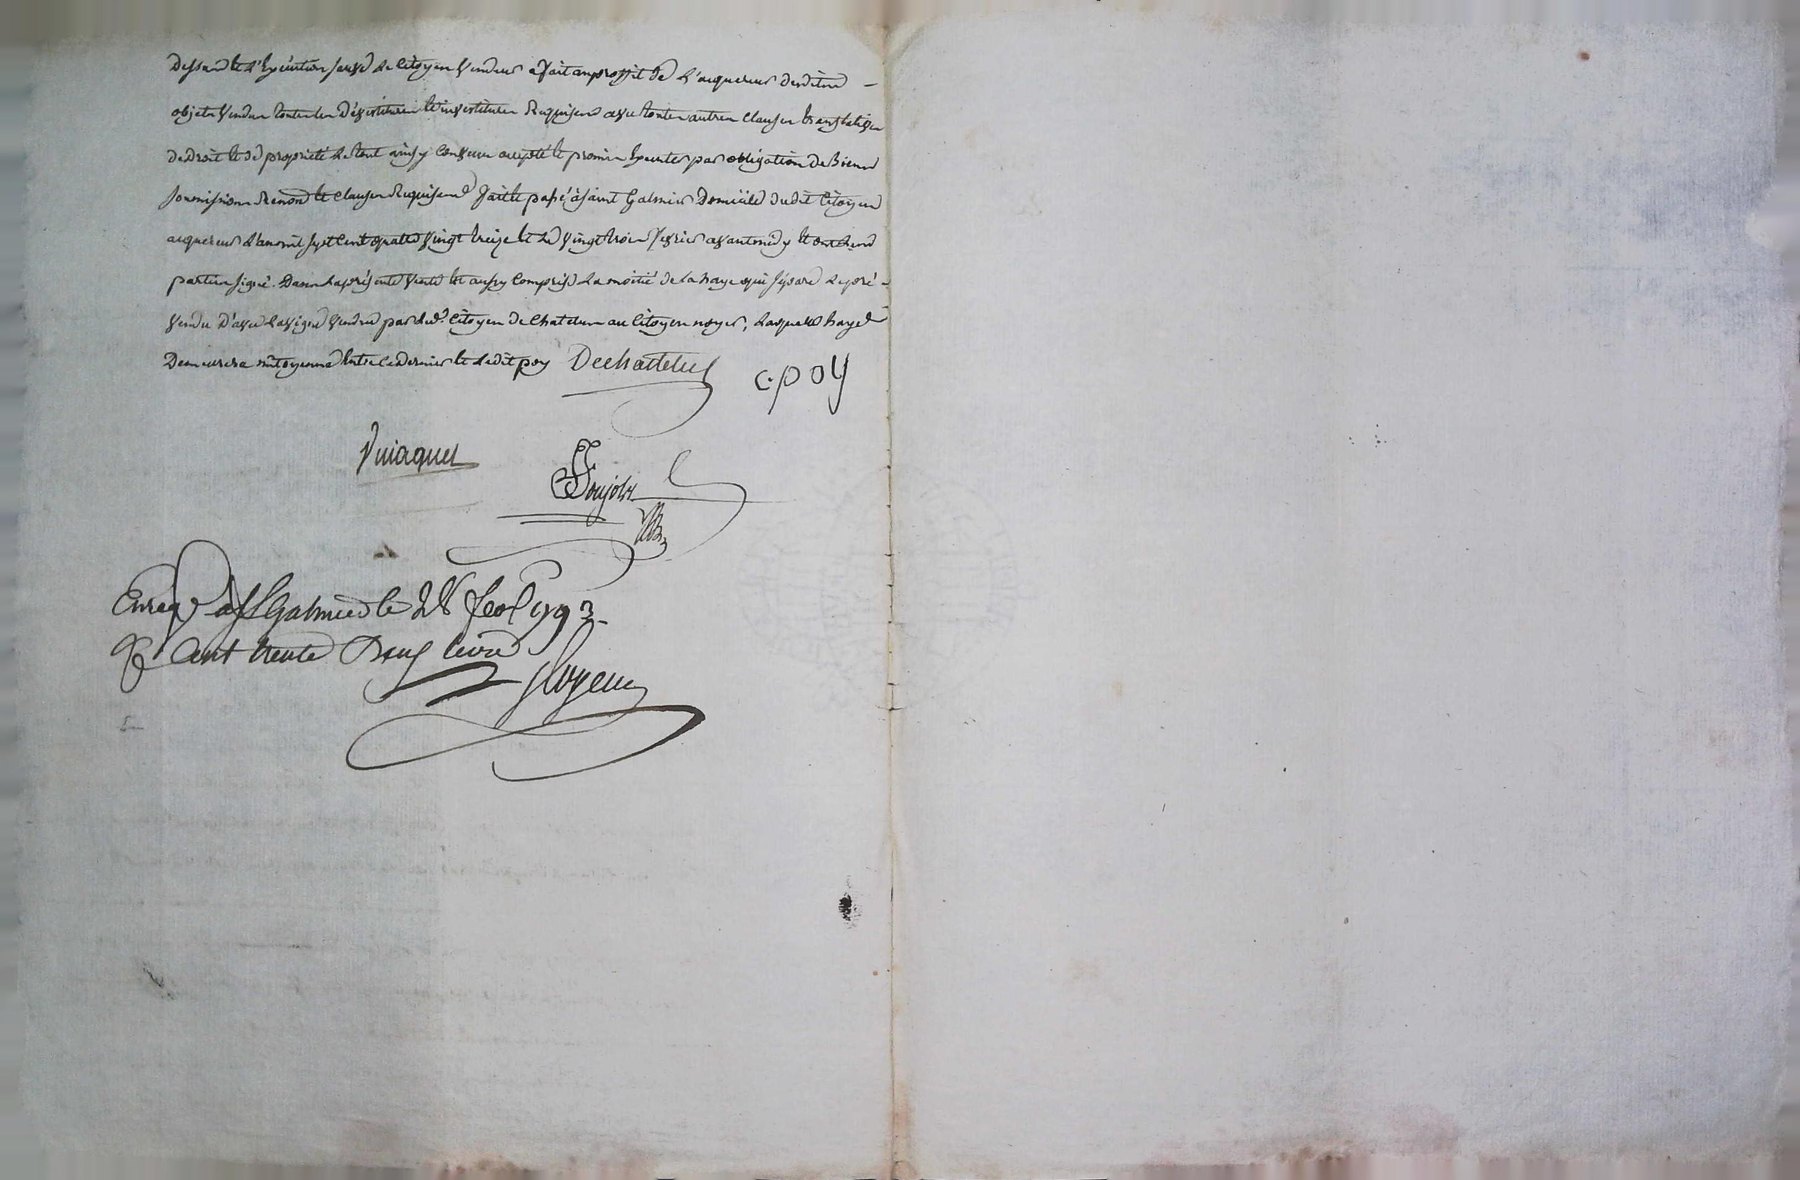 Dessus et l'Execution jceux le Citoyen vendeur a fait au proffit de l'acquereur desdits
objets vendus toutes les devestitures et investitures Requises avec toutes autres clauses translatives
de droit et de propriété le tout ainsy convenu accepté et promis Executer par obligation de Biens
soumissions Renond. et clauses Requises fait et passé à saint Galmier Domicile dudit citoyen
acquereur l'an mil sept cent quatre vingt treize et le vingt trois fevrier avant midy et ont les
parties signé. Dans la présente vente est aussy compris la moitié de la haye qui separe le pré
vendu d'avec la vigne vendue par led. Citoyen de Chatelus au citoyen noyer, laquelle haye
Demeurera mitoyenne entre ce dernier et ledit poy Dechattelus
c. poy
Enreg. a St Galmier le 28 feb. 1793
R. Cent trente Deux livres